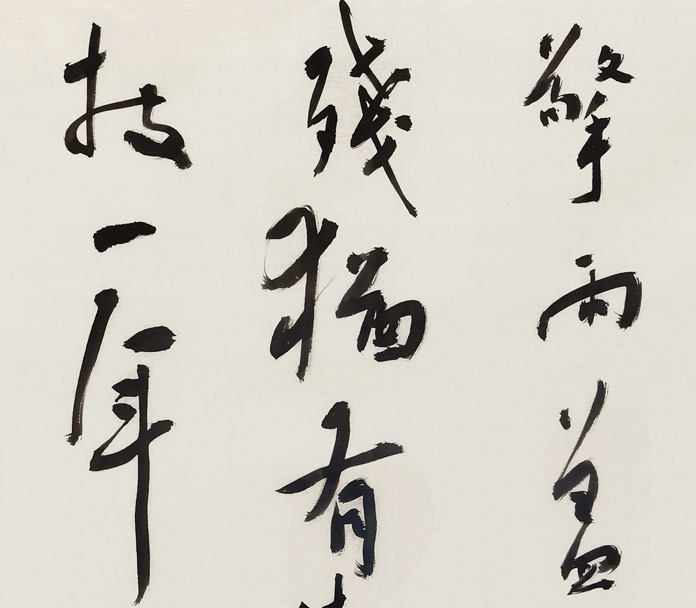 擎雨蓋
殘猶有
枝一年